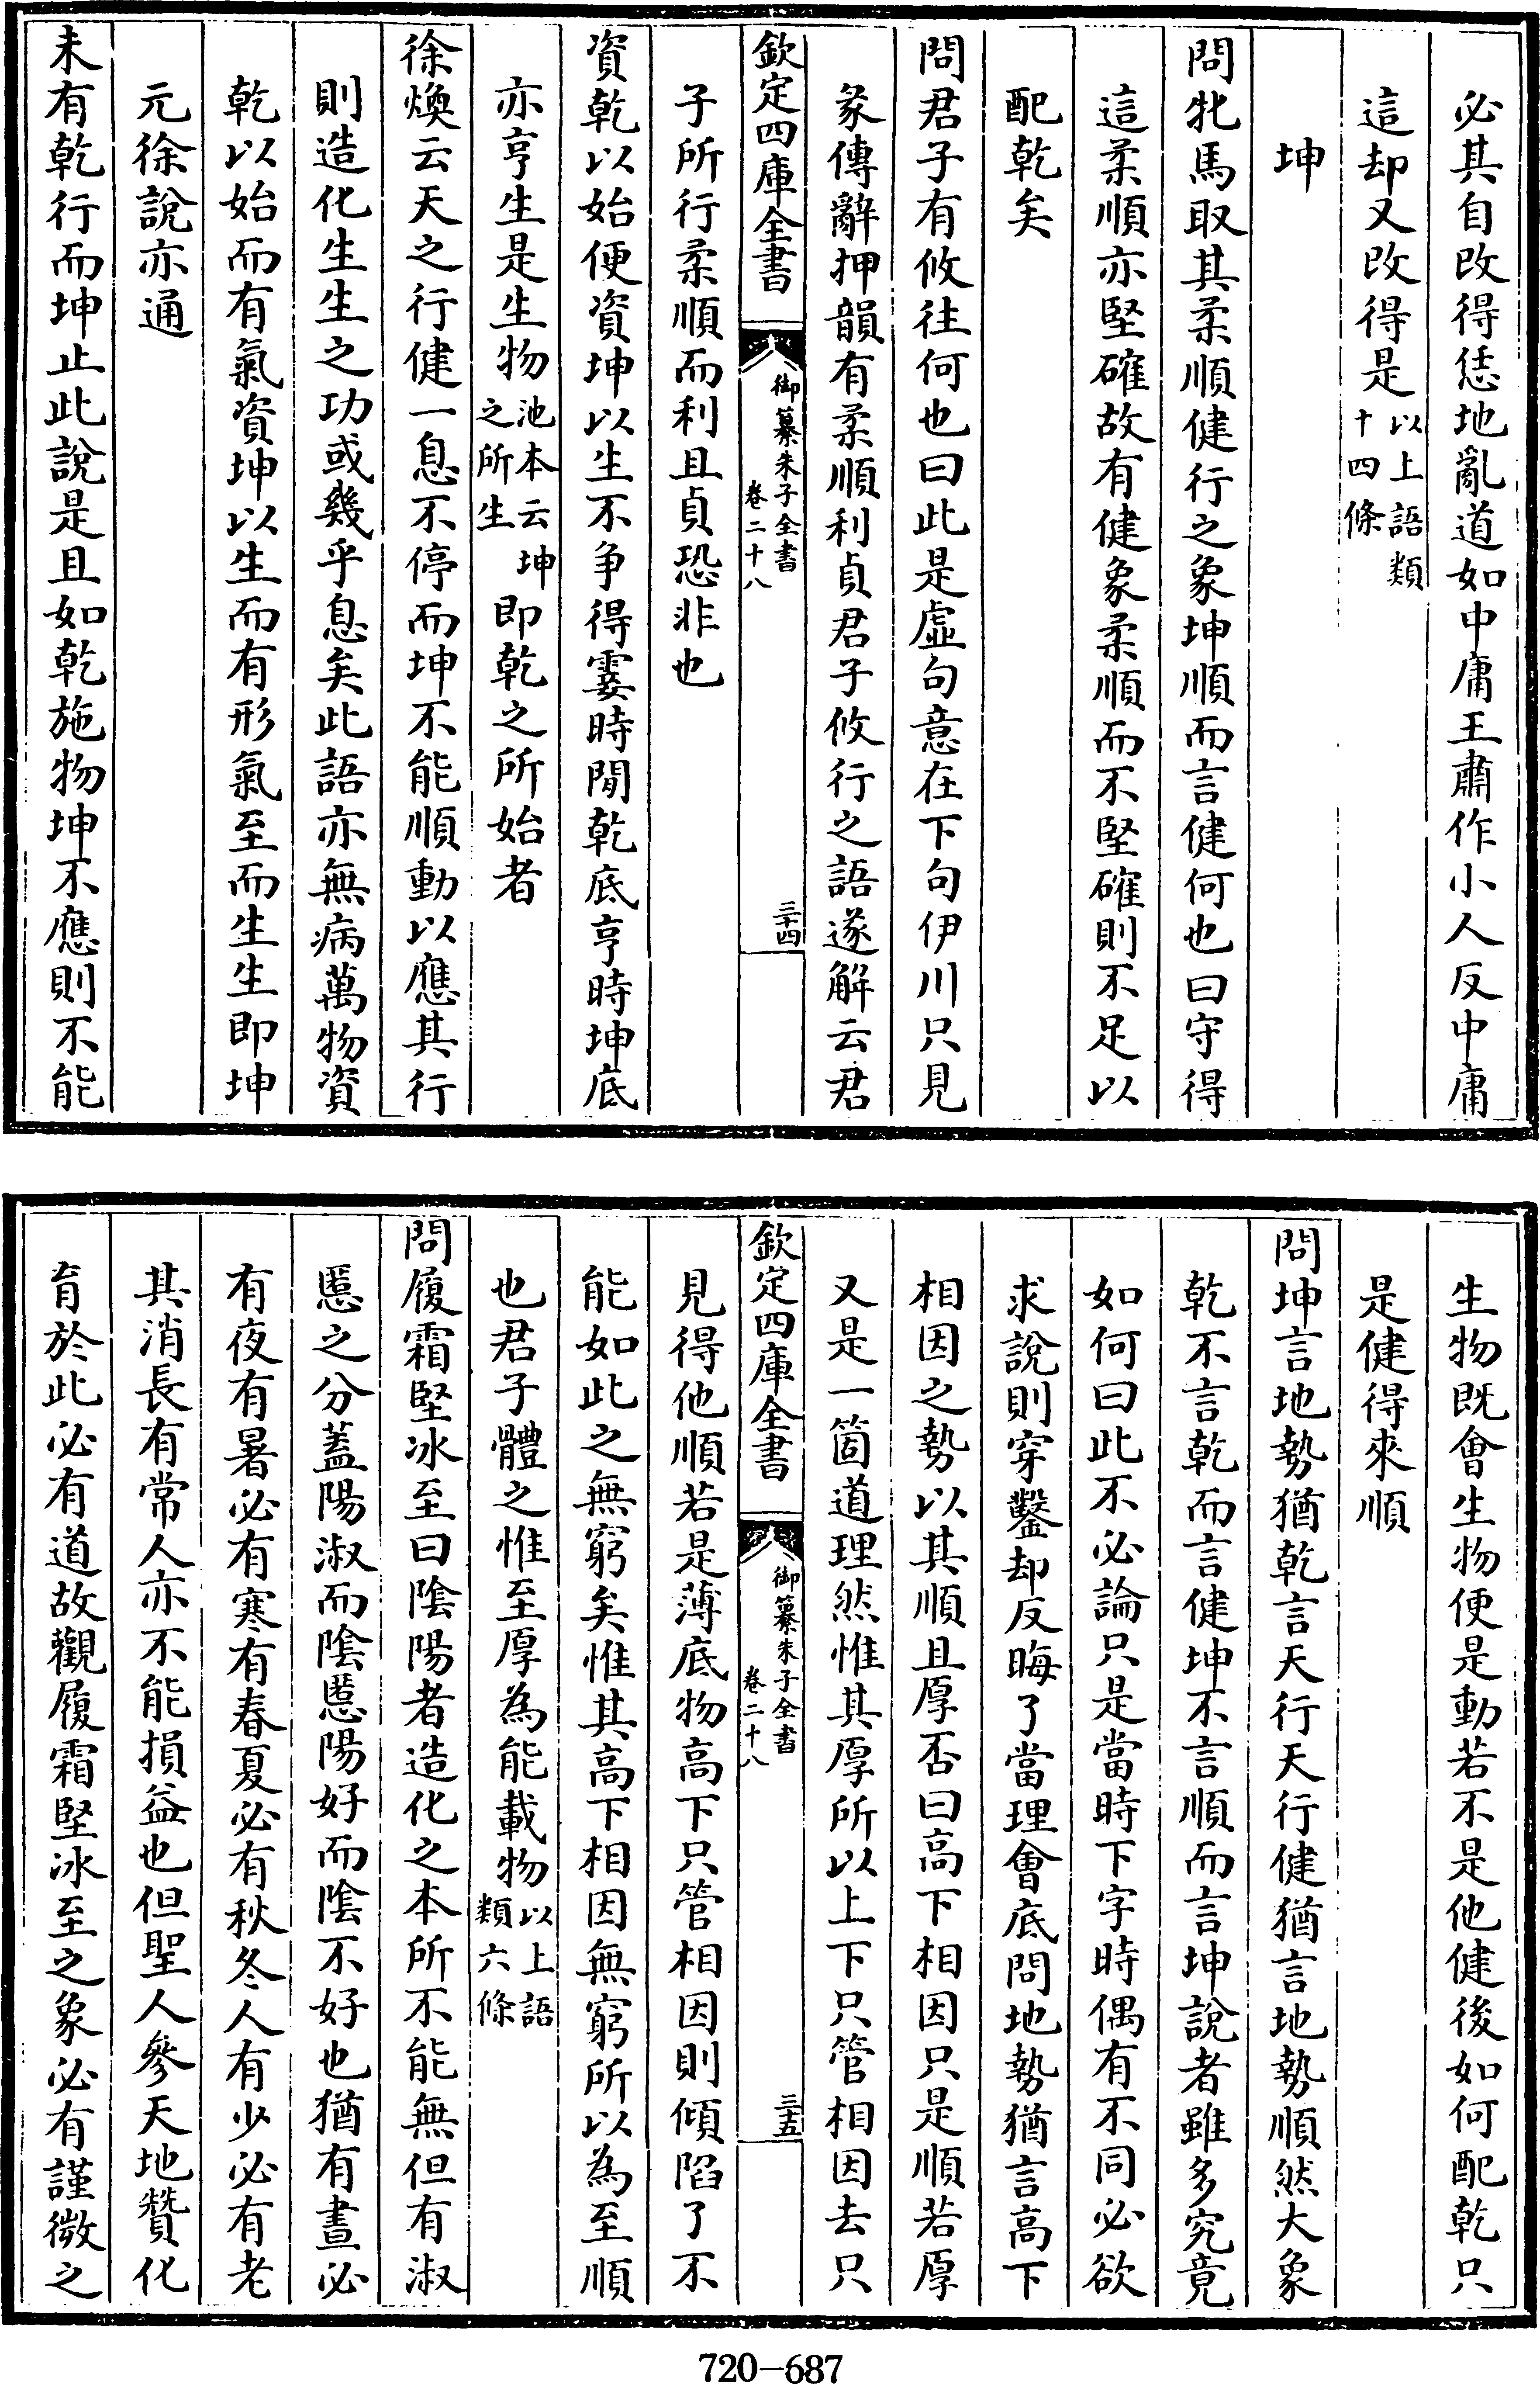 必其自改得恁地亂道如中庸王肅作小人反中庸
這却又改得是以上語類十四條
坤
問牝馬取其柔順健行之象坤順而言健何也曰守得
這柔順亦堅確故有健象柔順而不堅確則不足以
配乾矣
問君子有攸往何也曰此是虛句意在下句伊川只見
彖傳辭押韻有柔順利貞君子攸行之語遂解云君
欽定四庫全書
御纂朱子全書
卷二十八
三十四
子所行柔順而利且貞恐非也
資乾以始便資坤以生不爭得霎時間乾底亨時坤底
亦亨生是生物池本云坤之所生即乾之所始者
徐煥云天之行健一息不停而坤不能順動以應其行
則造化生生之功或幾乎息矣此語亦無病萬物資
乾以始而有氣資坤以生而有形氣至而生生即坤
元徐說亦通
未有乾行而坤止此說是且如乾施物坤不應則不能
生物既會生物便是動若不是他健後如何配乾只
是健得來順
問坤言地勢猶乾言天行天行健猶言地勢順然大象
乾不言乾而言健坤不言順而言坤說者雖多究竟
如何曰此不必論只是當時下字時偶有不同必欲
求說則穿鑿却反晦了當理會底問地勢猶言高下
相因之勢以其順且厚否曰高下相因只是順若厚
又是一箇道理然惟其厚所以上下只管相因去只
欽定四庫全書
御纂朱子全書
卷二十八
三十五
見得他順若是薄底物高下只管相因則傾陷了不
能如此之無窮矣惟其高下相因無窮所以為至順
也君子體之惟至厚為能載物以上語類六條
問履霜堅冰至曰陰陽者造化之本所不能無但有淑
慝之分蓋陽淑而陰慝陽好而陰不好也猶有晝必
有夜有暑必有寒有春夏必有秋冬人有少必有老
其消長有常人亦不能損益也但聖人參天地贊化
育於此必有道故觀履霜堅冰至之象必有謹微之
720-687